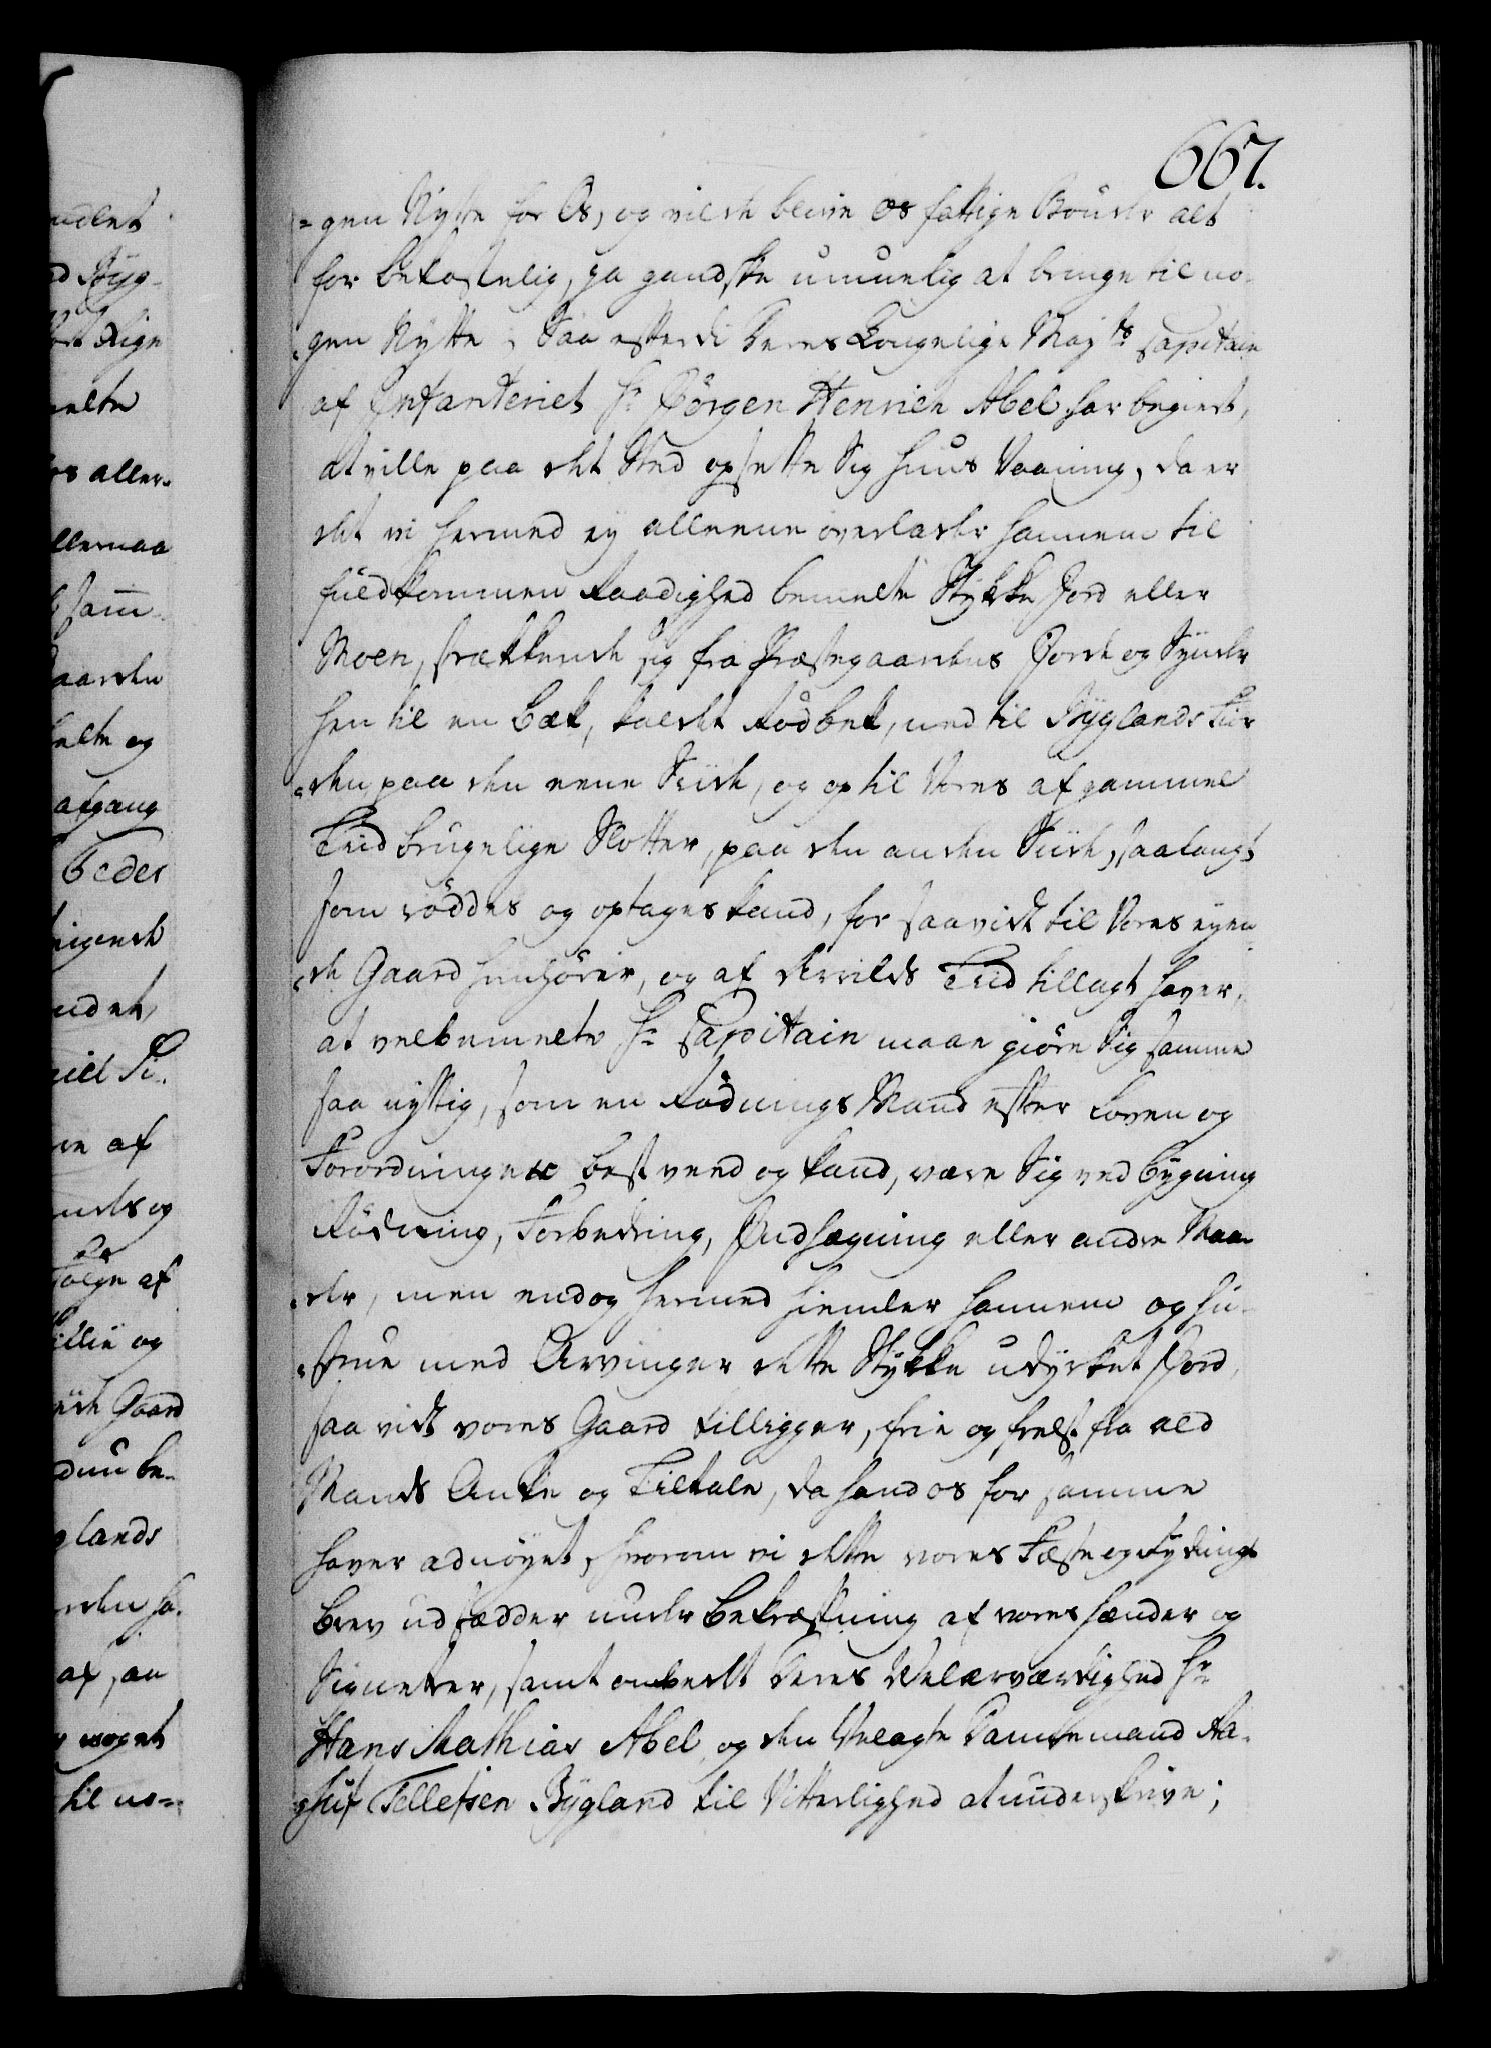 667.
=gen Nytte for Os, og vilde blive os fattige Bönder alt
for bekostelig, ja gandske umuelig at bringe til no-
=gen Nytte; Saa efterdi Deres Kongelige Mayts Capitain
af Infanteriet Hr Jörgen Henrich Abel har begiert,
at ville paa det Sted opsette Sig Huus Vaaning, da er
det vi hermed ey alleene överlader hannem til
fuldkommen Raadighed bemelte Stykke Jord eller
Moen, strækkende sig fra Præstegaardens Jorde og Synder
hen til en Bæk, kaldet Rödbek, ned til Byglands Fior
=den paa den eene Siide, og op til Vores af gammel
Tiid brugelige Slotter, paa den anden Siide, saalangt
som röddes og optages kand, for saavidt til Vores eyen
=de Gaard henhörer, og af Arrilds Tiid tillagt haver,
at velbemelte Hr Capitain maae giöre Sig samme
saa nyttig, som en Rödnings Mand efter Loven og
Forordninger best veed og kand, være Sig ved bygning
Rödning, Forbedring, Indhægning eller andre Maa-
=der, men endog hermed hiemler hannem og Hu-
=strue med Arvinger dette Stykke udyrket Jord,
saa vidt vores Gaard tilligger, frie og frelst fra ald
Mands Anke og Tiltale, da hand os for samme
haver adnöyet, hvorom vi dette vores Fæste og Rydnings
brev udstædder under Bekræftning af vores Hænder og
Signeter, samt ombedt Deres Velærværdighed Hr
Hans Mathias Abel, og den Velagte Dannemand Aa-
Tellefsen Bygland til Vitterlighed at underskrive;